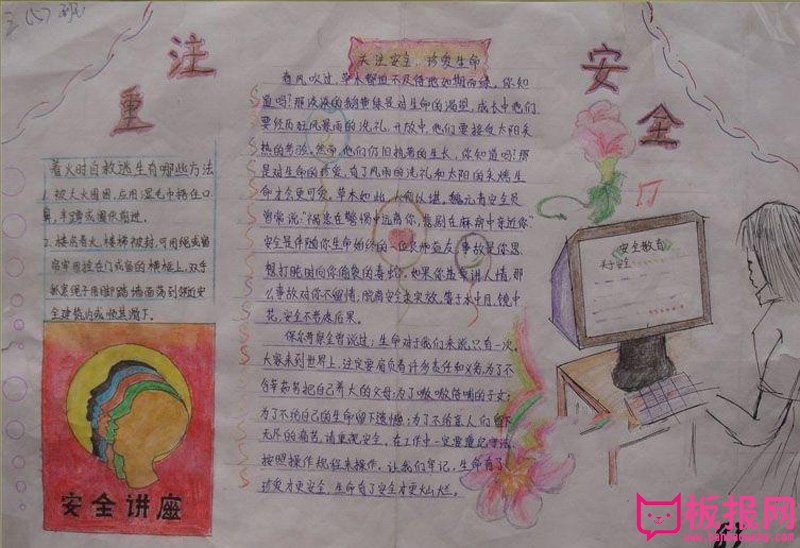 三(八)班
注重
安全
关注安全，珍爱生命
着火时自救逃生有哪些方法
1. 被大火围困，应用湿毛巾捂住口
鼻，半蹲或匍伏前进。
2. 楼房着火，楼梯被封，可用绳或窗
帘牢固拴在门或窗的横框上，双手
抓紧绳子用脚踏墙面荡到邻近安
全建筑内或顺其滑下。
安全讲座
春风吹过，草木都迫不及待地如期而绿，你知
道吗？那浓浓的新绿绿是对生命的渴望，成长中他们
要经历狂风暴雨的洗礼，开放中，他们要接受太阳炙
热的考验。然而，他们仍旧执着的生长，你知道吗？那
是对生命的珍爱。有了风雨的洗礼和太阳的炙烤生
命才会更可爱。草木如此，人何以堪。魏元青安全员
曾常说：“祸患在警惕中远离你，悲剧在麻痹中亲近你，
安全是伴随你生命始终的一位良师益友，事故是你思
想打盹时向你偷袭的毒蛇”。如果你违章讲人情，那
么事故对你不留情；脱离安全求实效，等于水中月，镜中
花，安全不考虑后果。
保尔·柯察金曾说过：生命对于我们来说只有一次。
大家来到世界上，注定要肩负着许多责任和义务，为了不
含辛茹苦把自己养大的父母；为了嗷嗷待哺的子女；
为了不给自己的生命留下遗憾；为了不给亲人们留下
无尽的痛苦，请重视安全，在工作中一定要遵纪守法，
按照操作规程来操作，让我们牢记，生命有了
珍爱才更安全，生命有了安全才更灿烂。
安全教育
关于安全
板报网
www.banbaowang.com